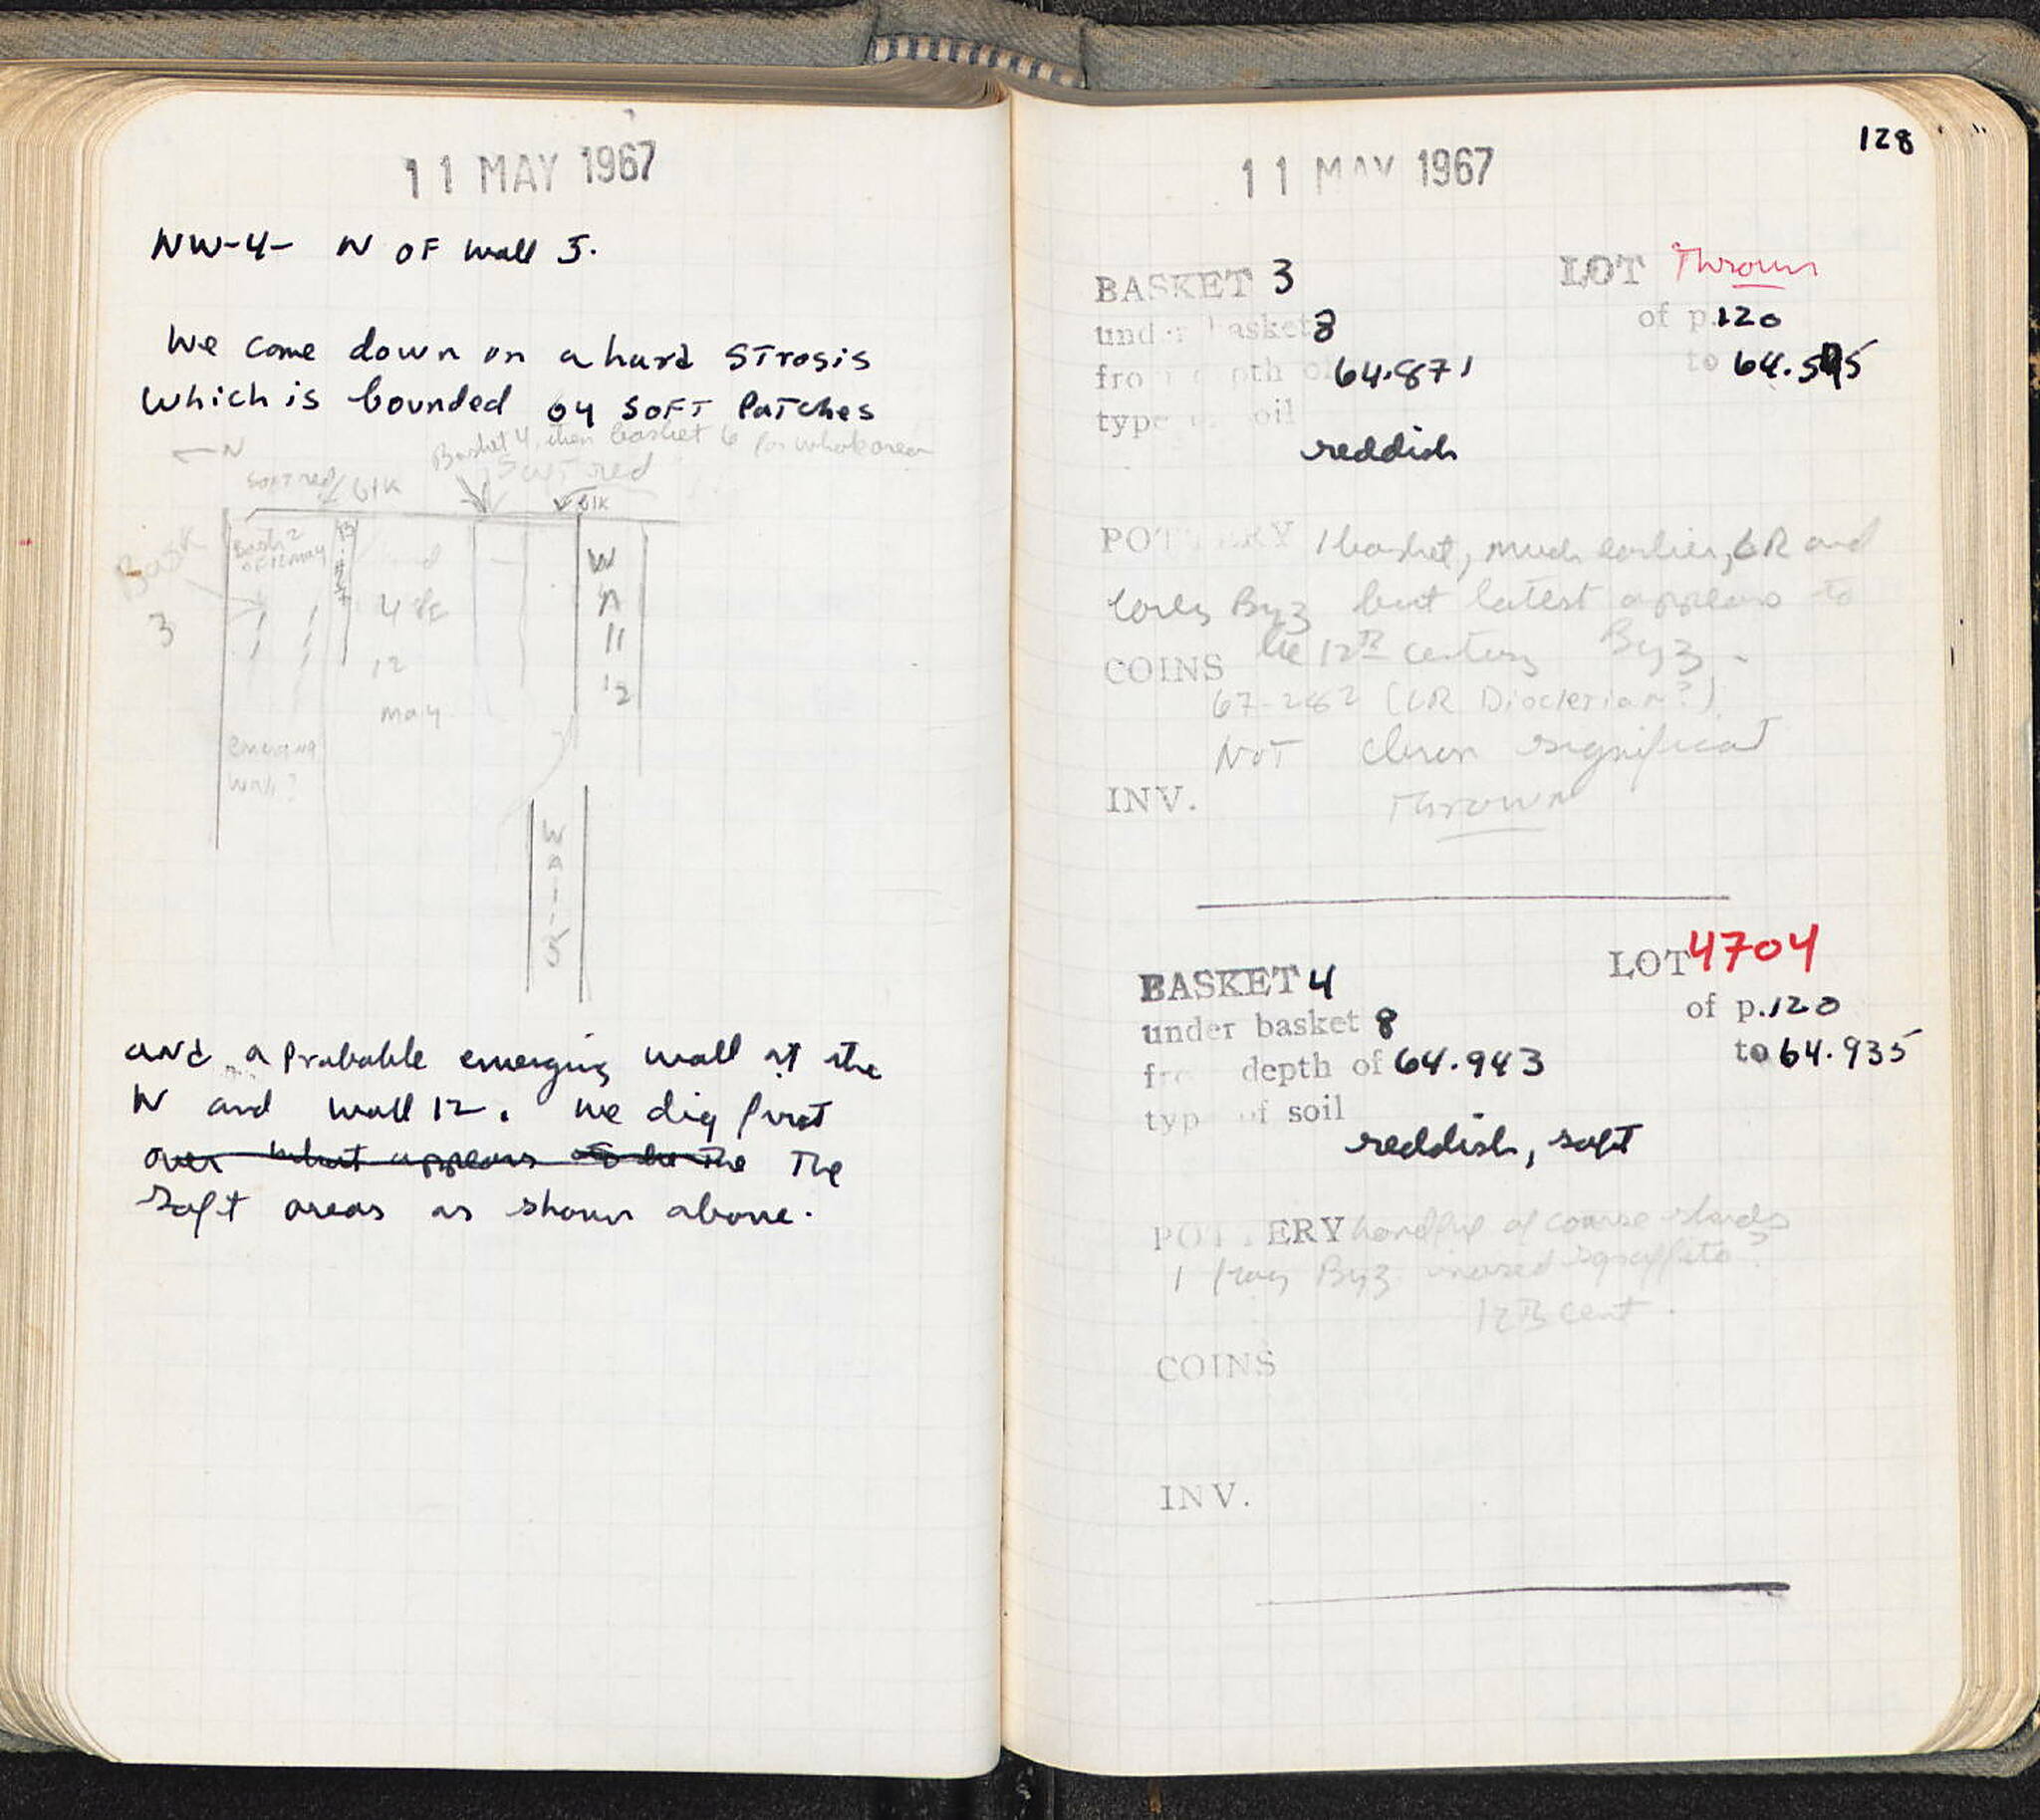 11 MAY 1967
NW-4- N OF wall 5.
We come down on a hard STrosis
which is bounded by SOFT PaTches
Basket 4, then basket 6 for whole area
← N
soft red
soft red/ blk
blk
Bask
3
Bask 2
of 12 may
hard
4 &
12
may
emerging
wall?
W
a
11
12
W
a
l
l
5
and a Probable emerging wall at the
N and wall 12. We dig first
over what appears to be the The
soft areas as shown above.
128
11 MAY 1967
BASKET 3 LOT Thrown
under basket 8 of p.120
from depth of 64.871 to 64.595
type of soil
reddish
POTTERY 1 basket, much earlier, LR and
early Byz but latest appears to
be 12th century Byz.
COINS
67-282 (LR Diocletian?)
NOT significant
INV. Thrown
BASKET 4 LOT 4704
under basket 8 of p.120
from depth of 64.943 to 64.935
type of soil
reddish, soft
POTTERY handful of coarse sherds
1 frag Byz incised sgraffito?
12th cent.
COINS
INV.